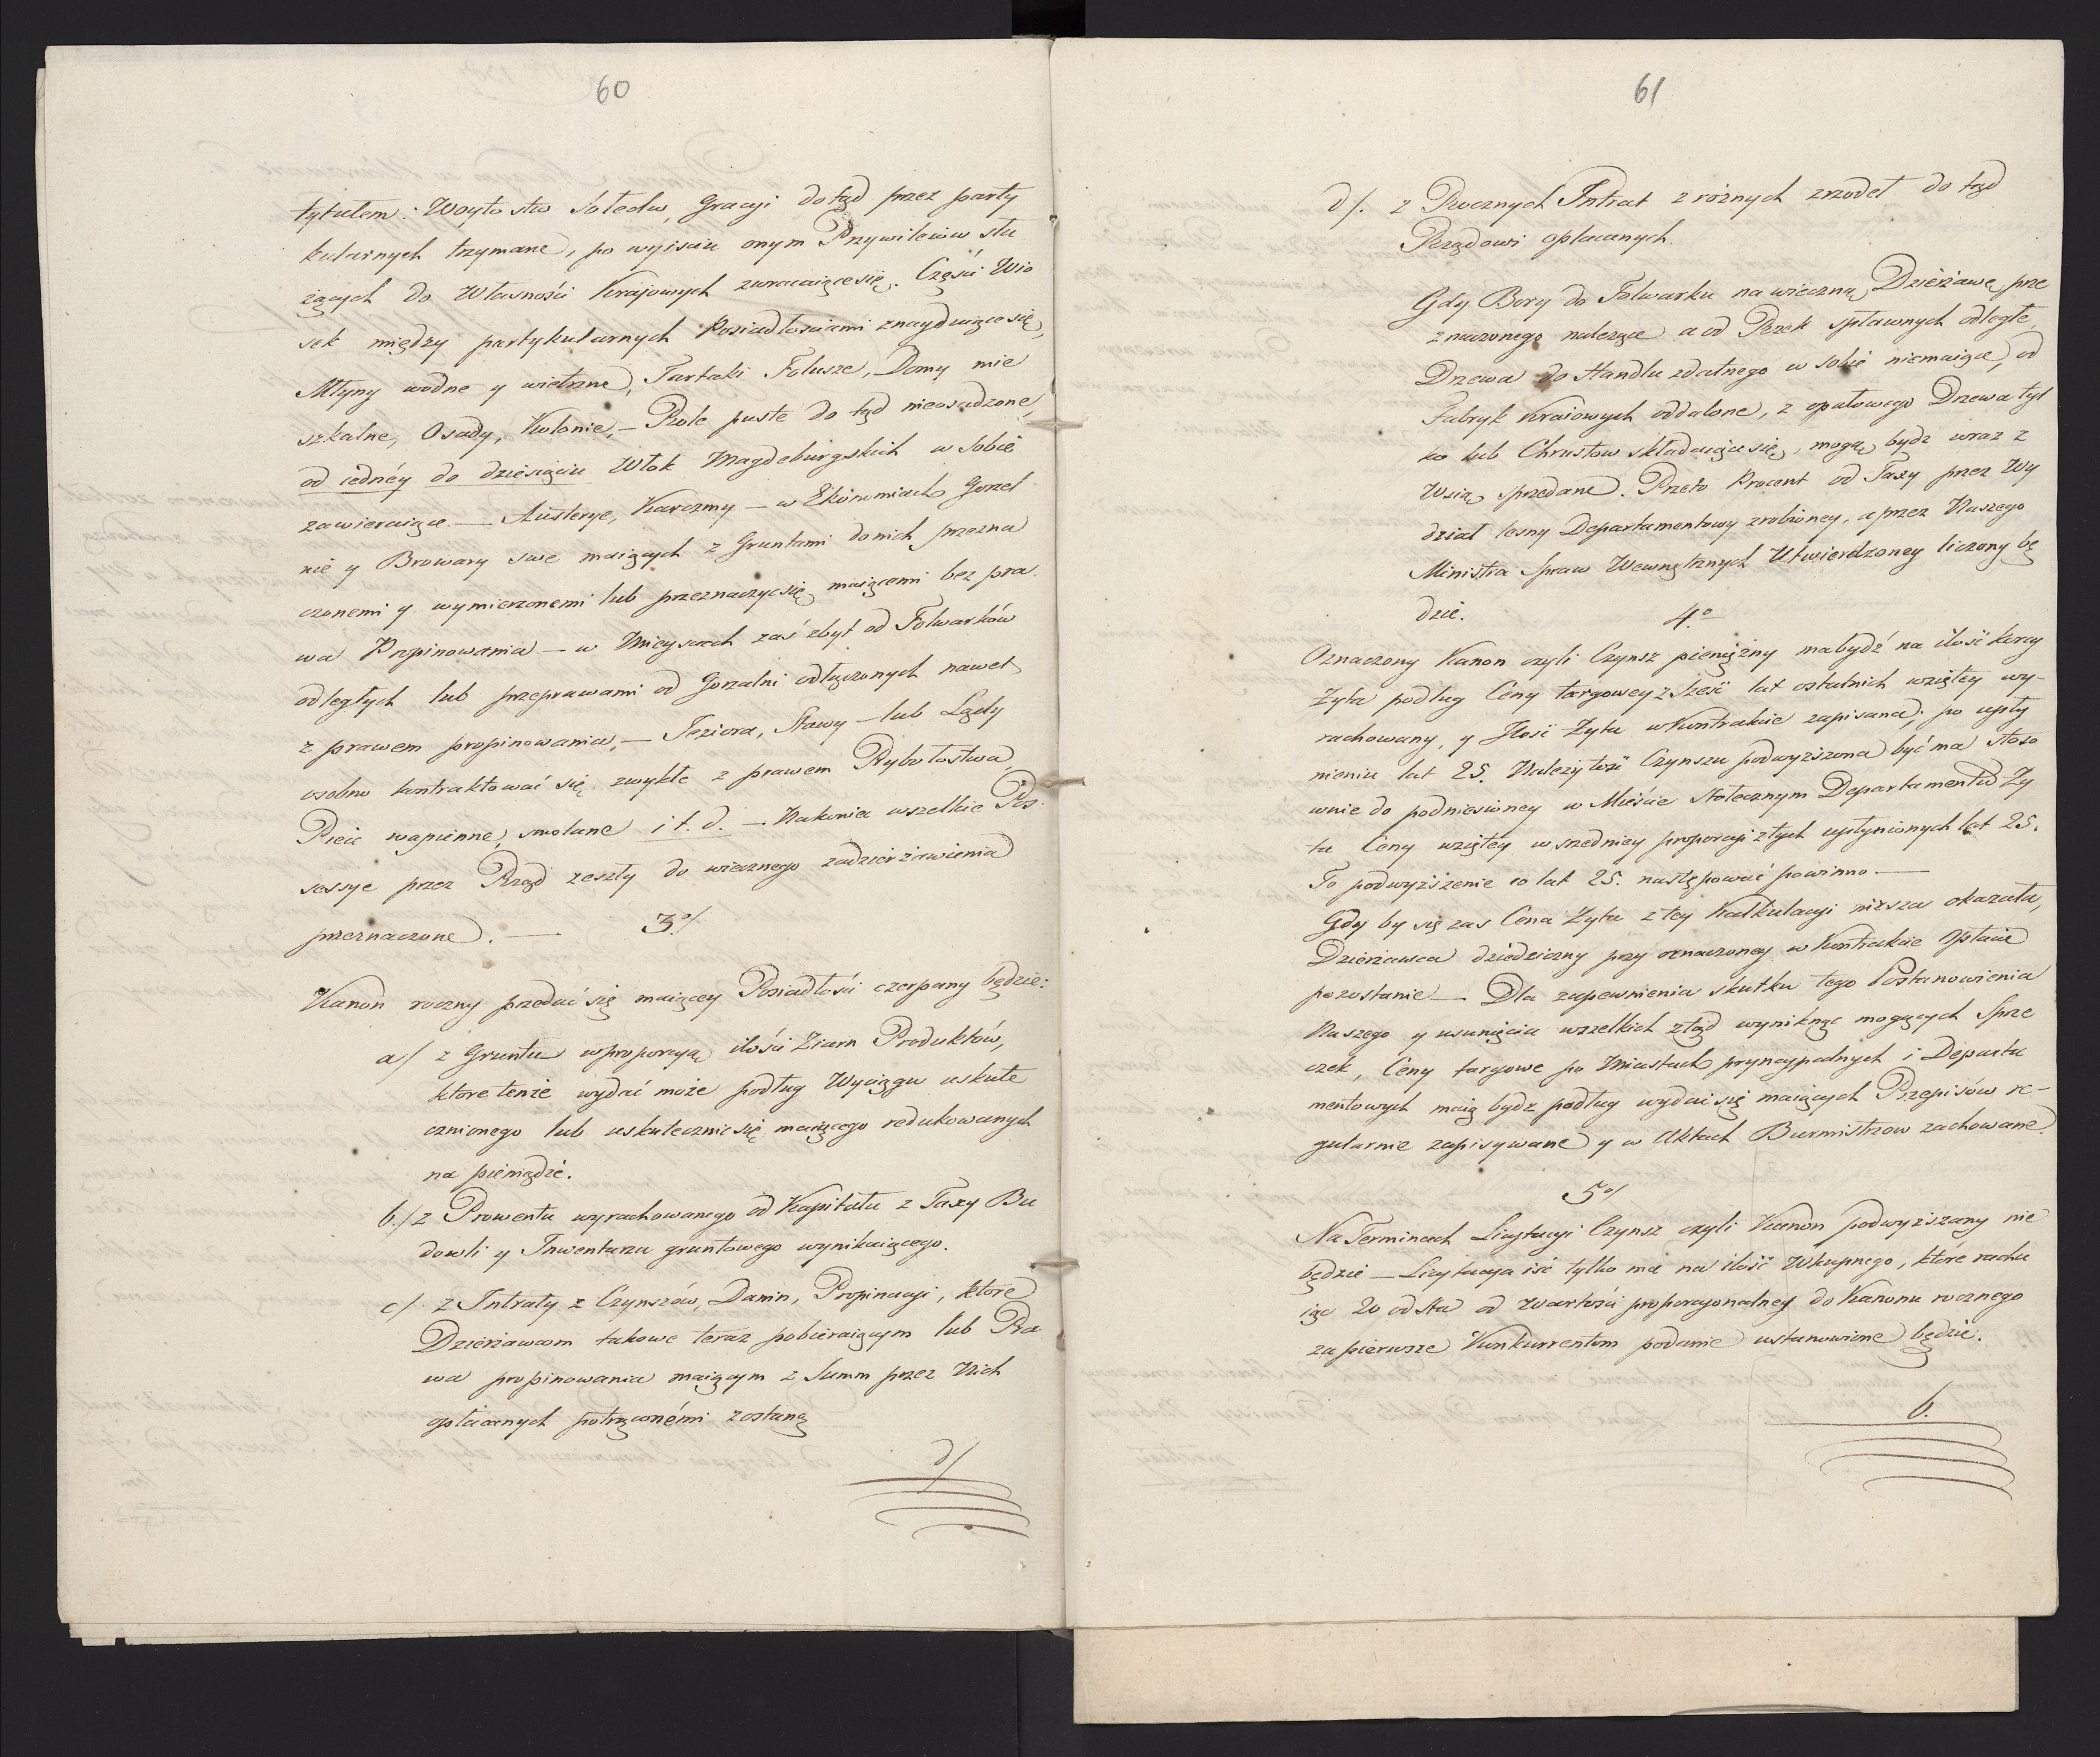 60
tytułem: Wóytostw Sołectw, Gracyi dotąd przez party
kularnych trzymane, po wyisciu onym Przywileiów słu
żących do Własności Krajowych zwracaiącesię. Części Wio
sek między partykularnych Posiadłosciami znayduiącesię,
Młyny wodne y wietrzne, Tartaki Folusze, Domy mie
szkalne, Osady, Kolonie, – Role puste do tąd nieosadzone,
od iednéy do dziesięciu Włok Magdeburgskich w sobie
zawieraiące. — Austerye, Karczmy – w Ekonomiach Gorzel
nie y Browary swe maiących z Gruntami do nich przezna
czonemi y wymierzonemi lub przeznaczyć się maiącemi bez pra
wa Propinowania – w Mieyscach zaś zbyt od Folwarków
odległych lub przeprawami od Gorzalni odłączonych nawet
z prawem propinowania, – Jeziora, Stawy – lub Lądy
osobno kontraktować się zwykłe z prawem Rybołostwa,
Piece wapienne, smolane i t. d. – Nakoniec wszelkie Pos
sessye przez Rząd zeszły do wiecznego zadzierżawienia
przeznaczone. —
3º/
Kanon roczny przedać się maiącey Posiadłości czerpany będzie:
a/ z Gruntu w proporcyą ilości Ziarn Produktów,
ktore tenże wydać może podług Wyciągu uskute
cznionego lub uskutecznić się maiącego redukowanych
na pieniądze.
b./ z Prowentu wyrachowanego od Kapitału z Taxy Bu
dowli y Inwentarza gruntowego wynikaiącego.
c/ z Intraty z Czynszów, Danin, Propinacyi, ktore
Dzierżawcom takowe teraz pobieraiącym lub Pra
wa propinowania maiącym z Summ przez Nich
opłacanych potrąconémi zostaną
d/
61
d/. z Rocznych Intrat z róznych zrzodeł do tąd
Rządowi opłacanych.
Gdy Bory do Folwarku na wieczną Dzierżawę prze
znaczonego należące a od Rzek spławnych odległe,
Drzewa do Handlu zdatnego w sobie niemaiące, od
Fabryk Kraiowych oddalone, z opałowego Drzewa tyl
ko lub Chrustow składaiące się, mogą bydz wraz z
Wsią sprzedane. Przeto Procent od Taxy przez Wy
dział leśny Departamentowy zrobioney, a przez Naszego
Ministra Spraw Wewnętrznych Utwierdzoney liczony bę
dzie.
4.º
Oznaczony Kanon czyli Czynsz pieniężny ma bydź na ilość korcy
Żyta podług Ceny targowey z Sześć lat ostatnich wziętey wy-
rachowany, y Ilość Żyta w Kontrakcie zapisana, po upły
nieniu lat 25. Należytość Czynszu podwyższona być ma stoso
wnie do podniesioney w Mieście Stołecznym Departamentu Ży
ta Ceny wziętey w średniey proporcyi z tych upłynionych lat 25.
To podwyższenie co lat 25. następować powinno. —
Gdy by się zas Cena Żyta z tey Kalkulacyi niższa okazała,
Dzierżawca dziedziczny przy oznaczoney w Kontrakcie Opłacie
pozostanie — Dla zapewnienia skutku tego Postanowienia
Naszego y usunięcia wszelkich ztąd wyniknąc mogących Sprze
czek, Ceny targowe po Miastach pryncypalnych i Departa
mentowych maią bydz podług wydać się maiących Przepisów re-
gularnie zapisywane y w Aktach Burmistrzow zachowane.
5º/
Na Terminach Licytacyi Czynsz czyli Kanon podwyższany nie
będzie – Licytacya iść tylko ma na ilość Wkupnego, które rachu
iąc 20 od sta od Wartości proporcyonalney do Kanonu rocznego
za pierwsze Konkurrentom podanie ustanowione będzie.
6.